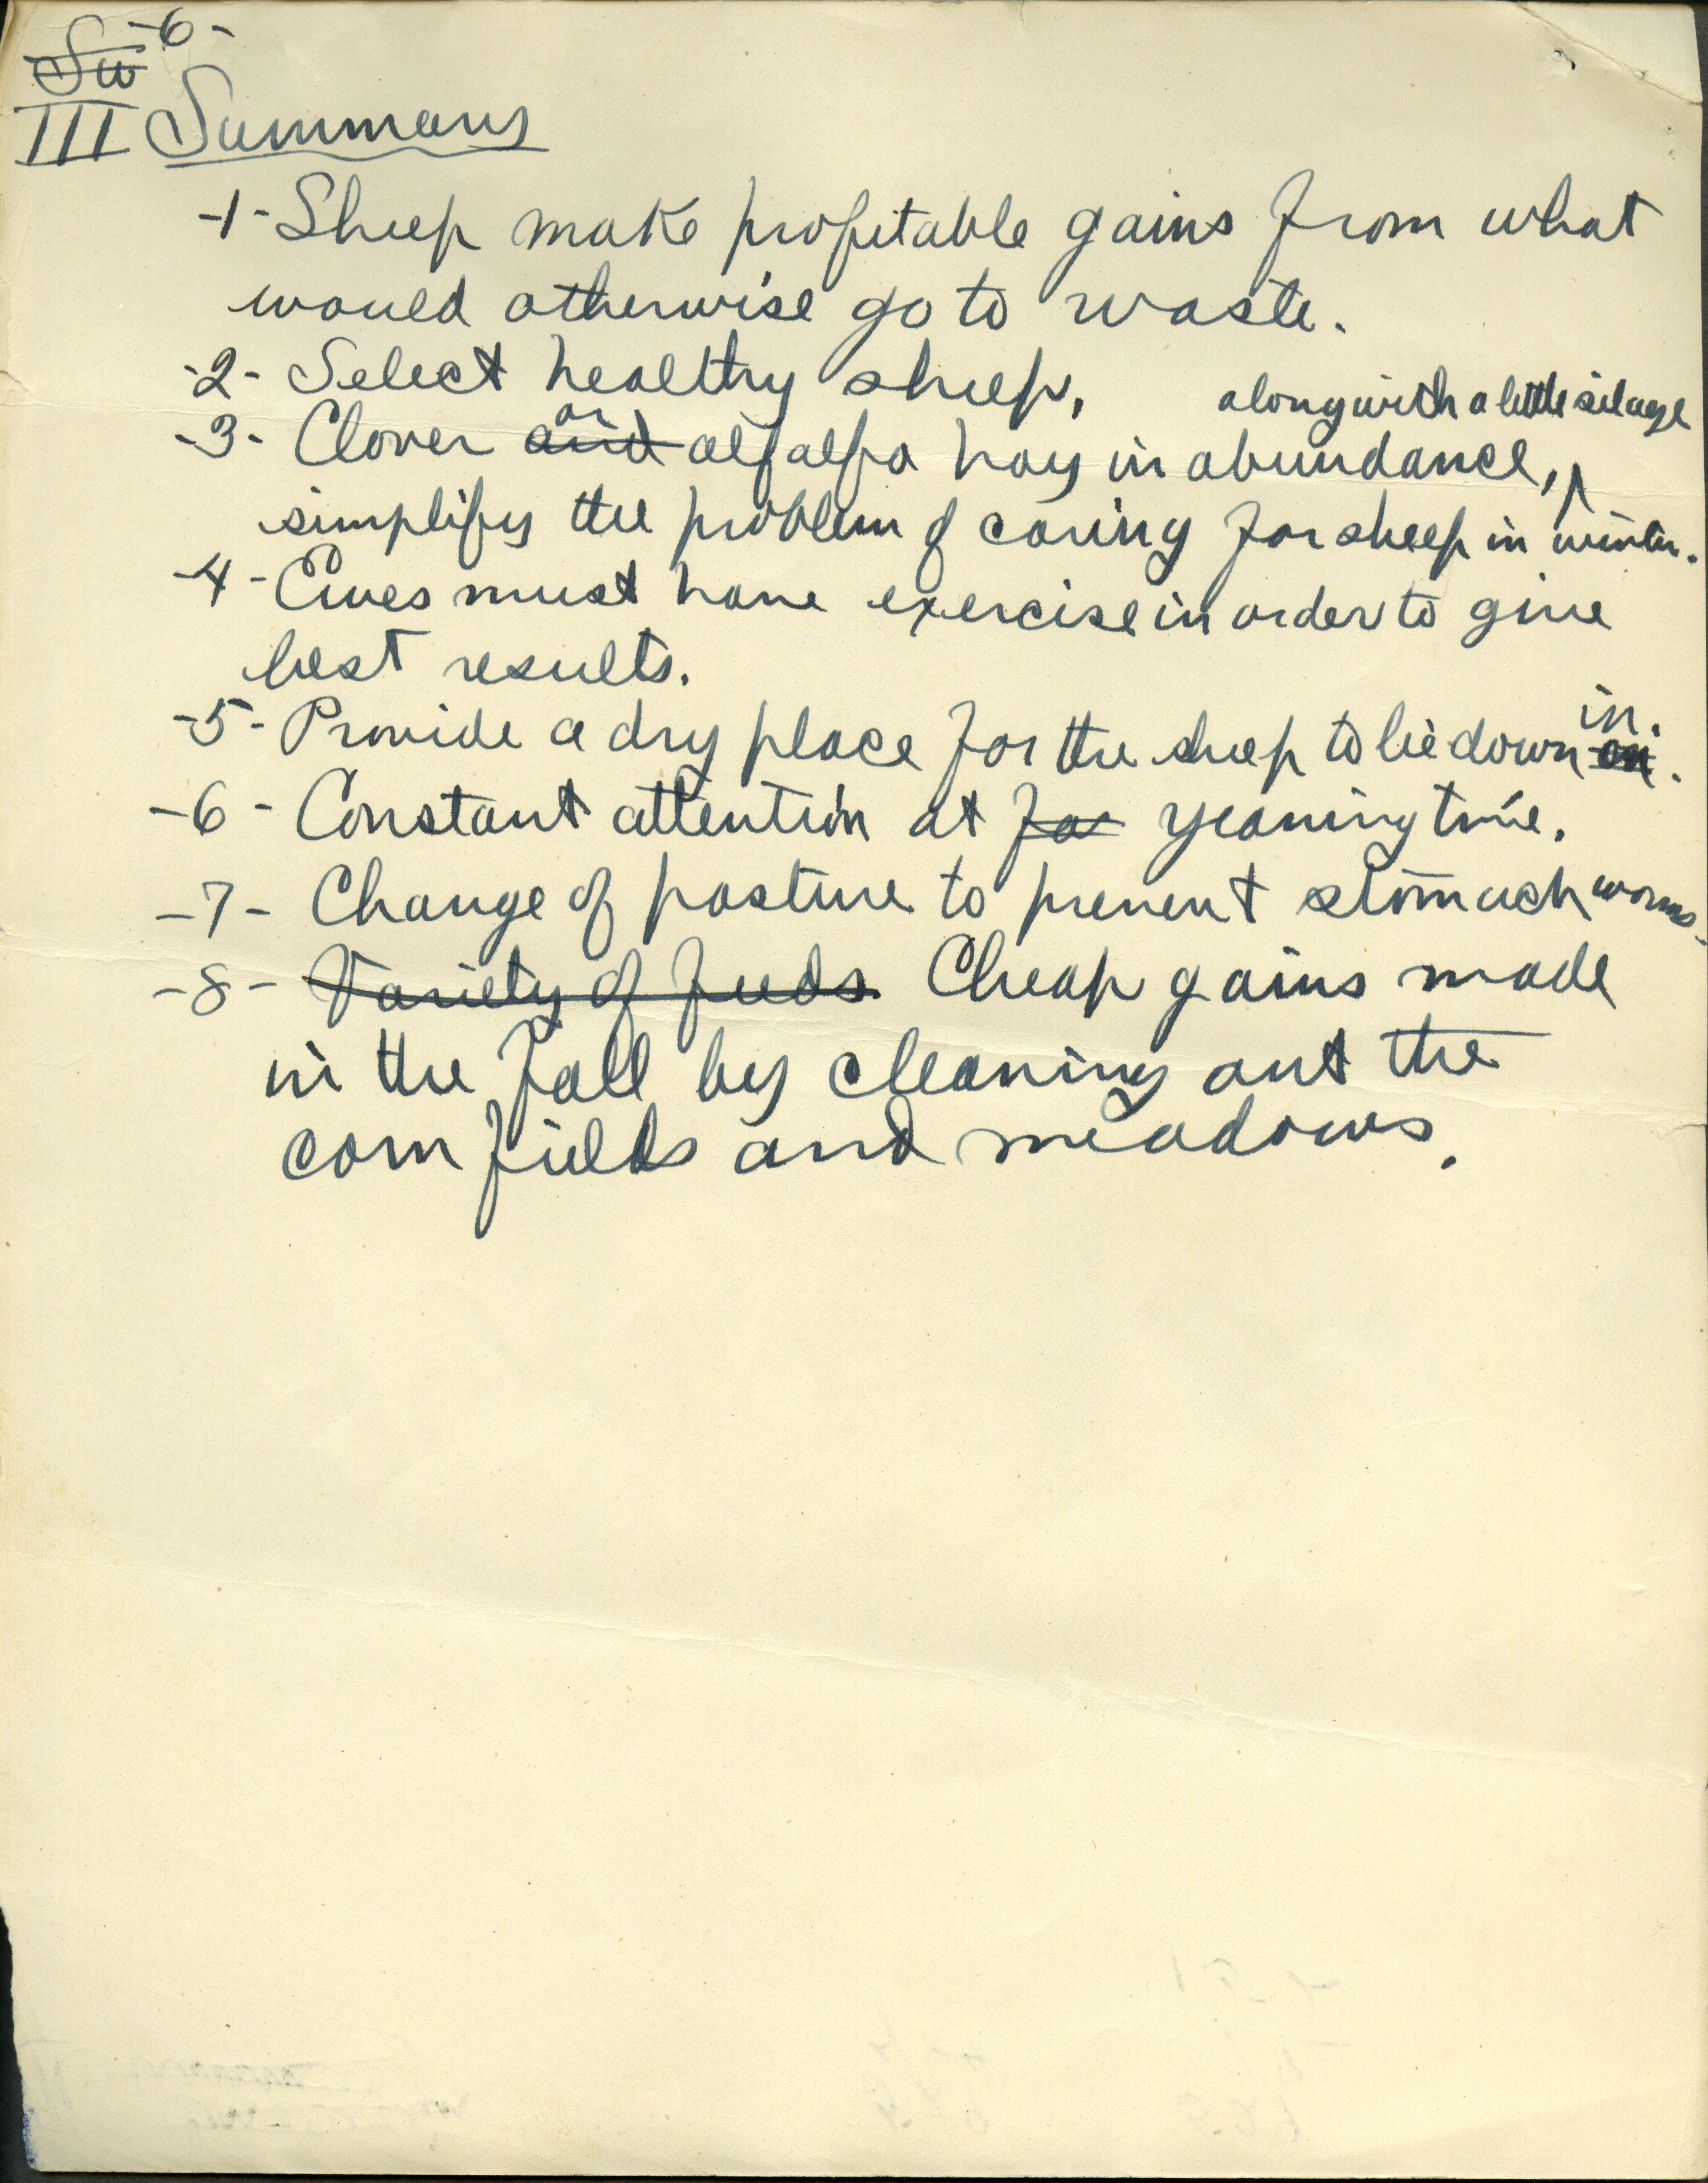 -6-
Su
III Summary
-1- Sheep make profitable gains from what
would otherwise go to waste.
-2- Select healthy sheep.
along with a little silage
or
-3- Clover and alfalfa hay in abundance,
simplifys the problem of caring for sheep in winter.
-4- Ewes must have exercise in order to give
best results.
in.
-5- Provide a dry place for the sheep to lie down on.
-6- Constant attention at for yeaning time.
-7- Change of pasture to prevent stomach worms.
-8- Variety of feeds. Cheap gains made
in the fall by cleaning out the
corn fields and meadows.